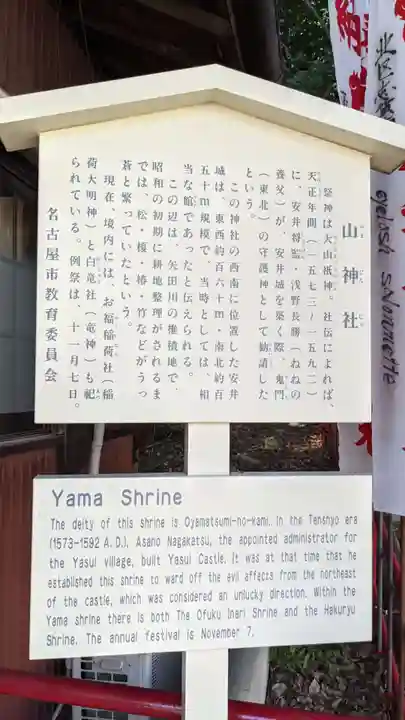 山神社
祭神は大山祇神。社伝によれば、
天正年間（一五七三〜一五九二）
に、安井将監・浅野長勝（ねねの
養父）が、安井城を築く際、鬼門
（東北）の守護神として勧請した
という。
この神社の西南に位置した安井
城は、東西約百六十ｍ・南北約百
五十ｍ規模で、当時としては、相
当な館であったと伝えられる。
この辺は、矢田川の堆積地で、
昭和の初期に耕地整理がされるま
では、松・榎・椿・竹などがうっ
蒼と繁っていたという。
現在、境内には、お福稲荷社（稲
荷大明神）と白竜社（竜神）も祀
られている。例祭は、十一月七日。
名古屋市教育委員会
Yama Shrine
The deity of this shrine is Oyamatsumi-no-kami. In the Tenshyo era
(1573-1592 A.D.), Asano Nagakatsu, the appointed administrator for
the Yasui village, built Yasui Castle. It was at that time that he
established this shrine to ward off the evil affects from the northeast
of the castle, which was considered an unlucky direction. Within the
Yama shrine there is both The Ofuku Inari Shrine and the Hakuryu
Shrine. The annual festival is November 7.
北区
eyelash salon